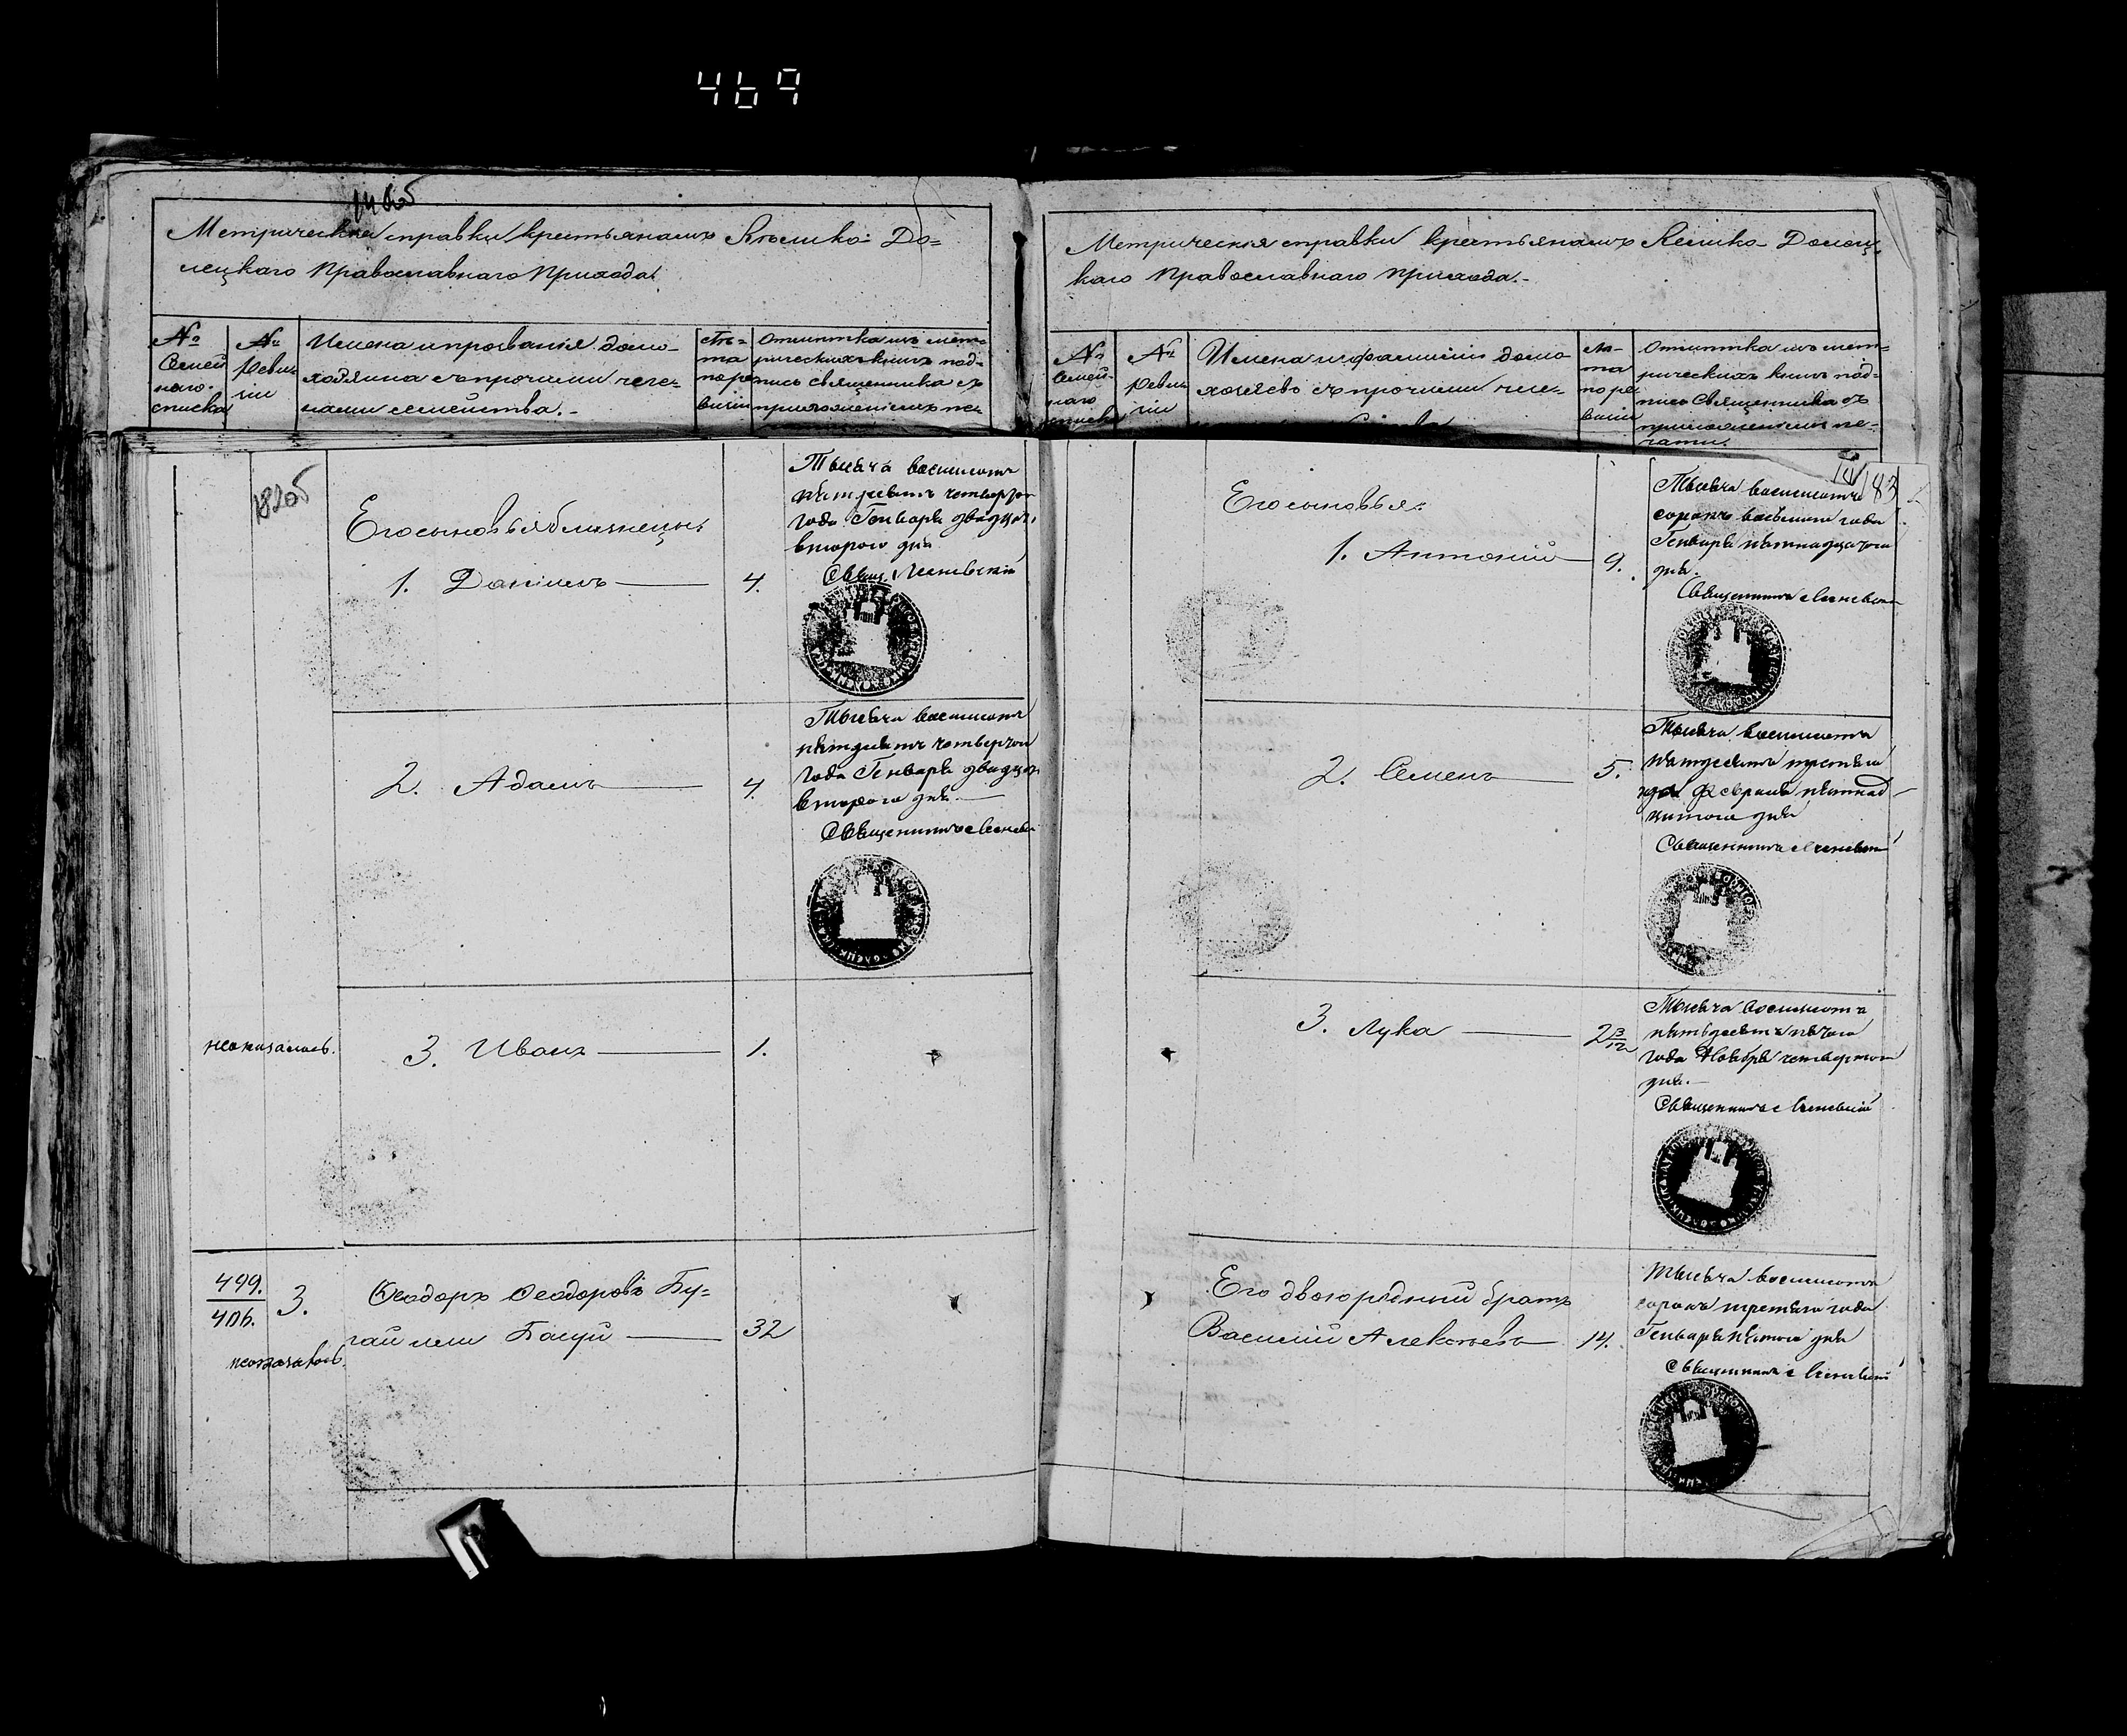 469
Метрическія справки крестьянамъ Велико-До=
лецкаго Православнаго Прихода.
№
Семей
наго
списка
№
Реви
зіи
Имена и прозванія домо-
хозяина съ прочими чле-
нами семейства.-
Лѣ=
та
по ре
визіи
Отмѣтка изъ мет-
рическихъ книгъ под-
пись священника съ
приложеніемъ пе-
182об
Его сыновья близнецы:
1. Даніилъ — 4.
Тысяча восемьсотъ
пятдесятъ четвертого
года Генваря двадцать
второго дня
Свящ.
2. Адамъ — 4.
Тысяча восемьсотъ
пятдесятъ четвертого
года Генваря двадцать
второго дня.—
Священникъ
неоказалось.
3. Иванъ — 1.
499.
406.
3.
Ѳеодоръ Ѳеодоровъ Бу=
гай или Бацуй — 32
неоказалось.
Метрическія справки крестьянамъ Велико-Долец-
каго Православнаго прихода.-
№
Семей-
наго
списка
№
Реви
зіи
Имена и фамиліи домо
хозяевъ съ прочими чле-
Лѣ-
та
по ре
визіи
Отмѣтка изъ мет-
рическихъ книгъ под-
пись Священника съ
приложеніемъ пе-
чати.
183
Его сыновья:
1. Антоній — 9.
Тысяча восемьсотъ
сорокъ восьмого года
Генваря пятнадцатого
дня.
Священникъ
2. Семенъ — 5.
Тысяча восемьсотъ
пятдесятъ третяго
года Февраля пятнад-
цатого дня
Священникъ
3. Лука — 2 3/12
Тысяча восемьсотъ
пятдесятъ пятого
года Ноября четвертого
дня.—
Священникъ
Его двоюрдный братъ
Василій Алексѣевъ — 14.
Тысяча восемьсотъ
сорокъ третяго года
Генваря пятого дня
Священникъ